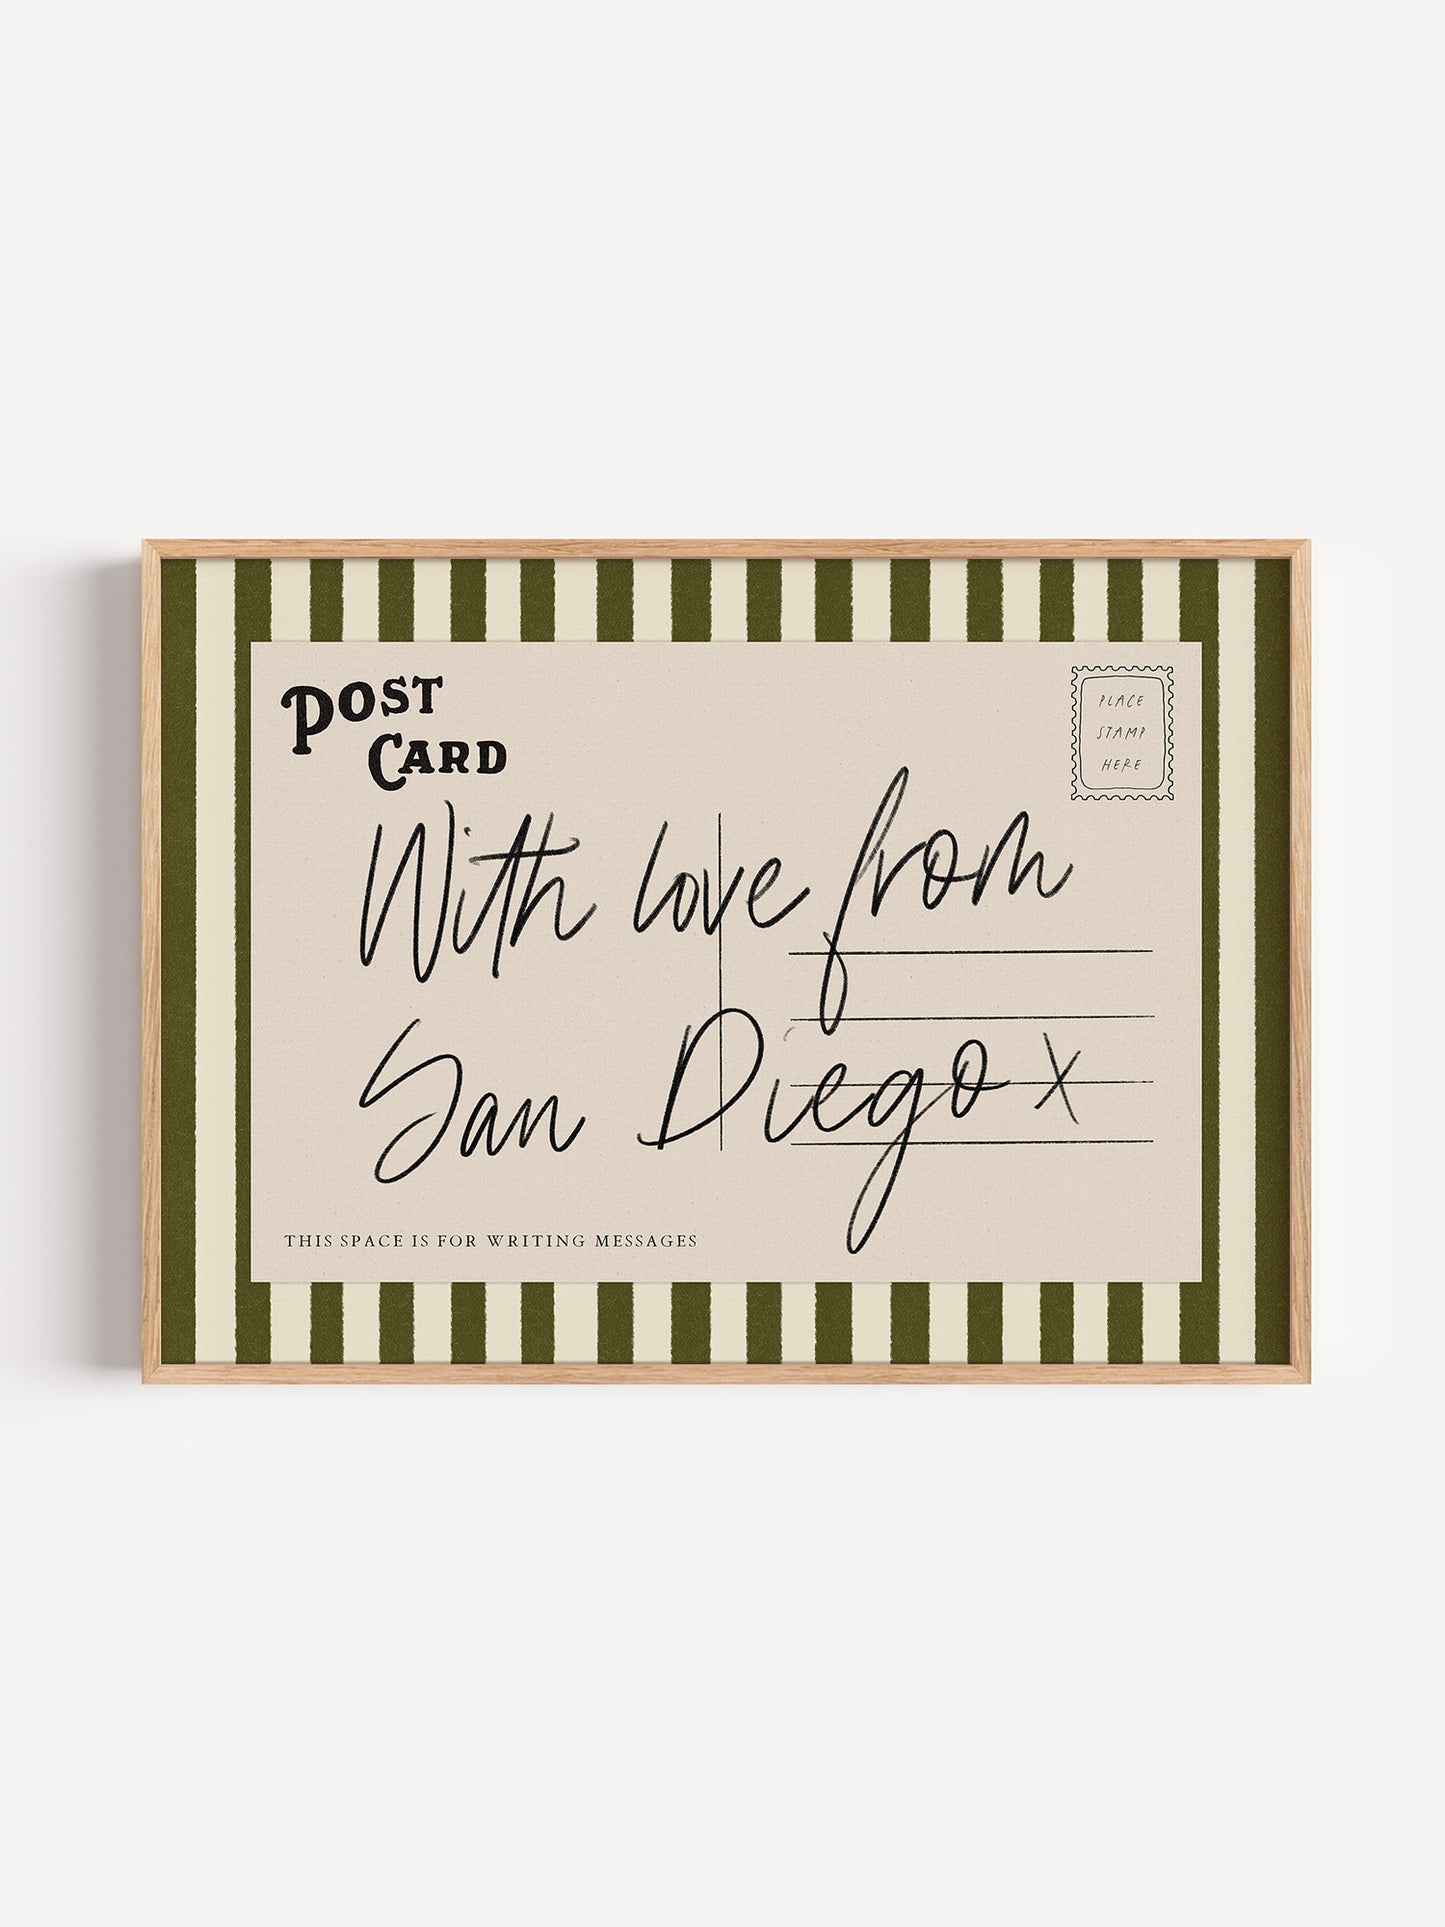 POST
CARD
PLACE
STAMP
HERE
With love from
San Diego x
THIS SPACE IS FOR WRITING MESSAGES